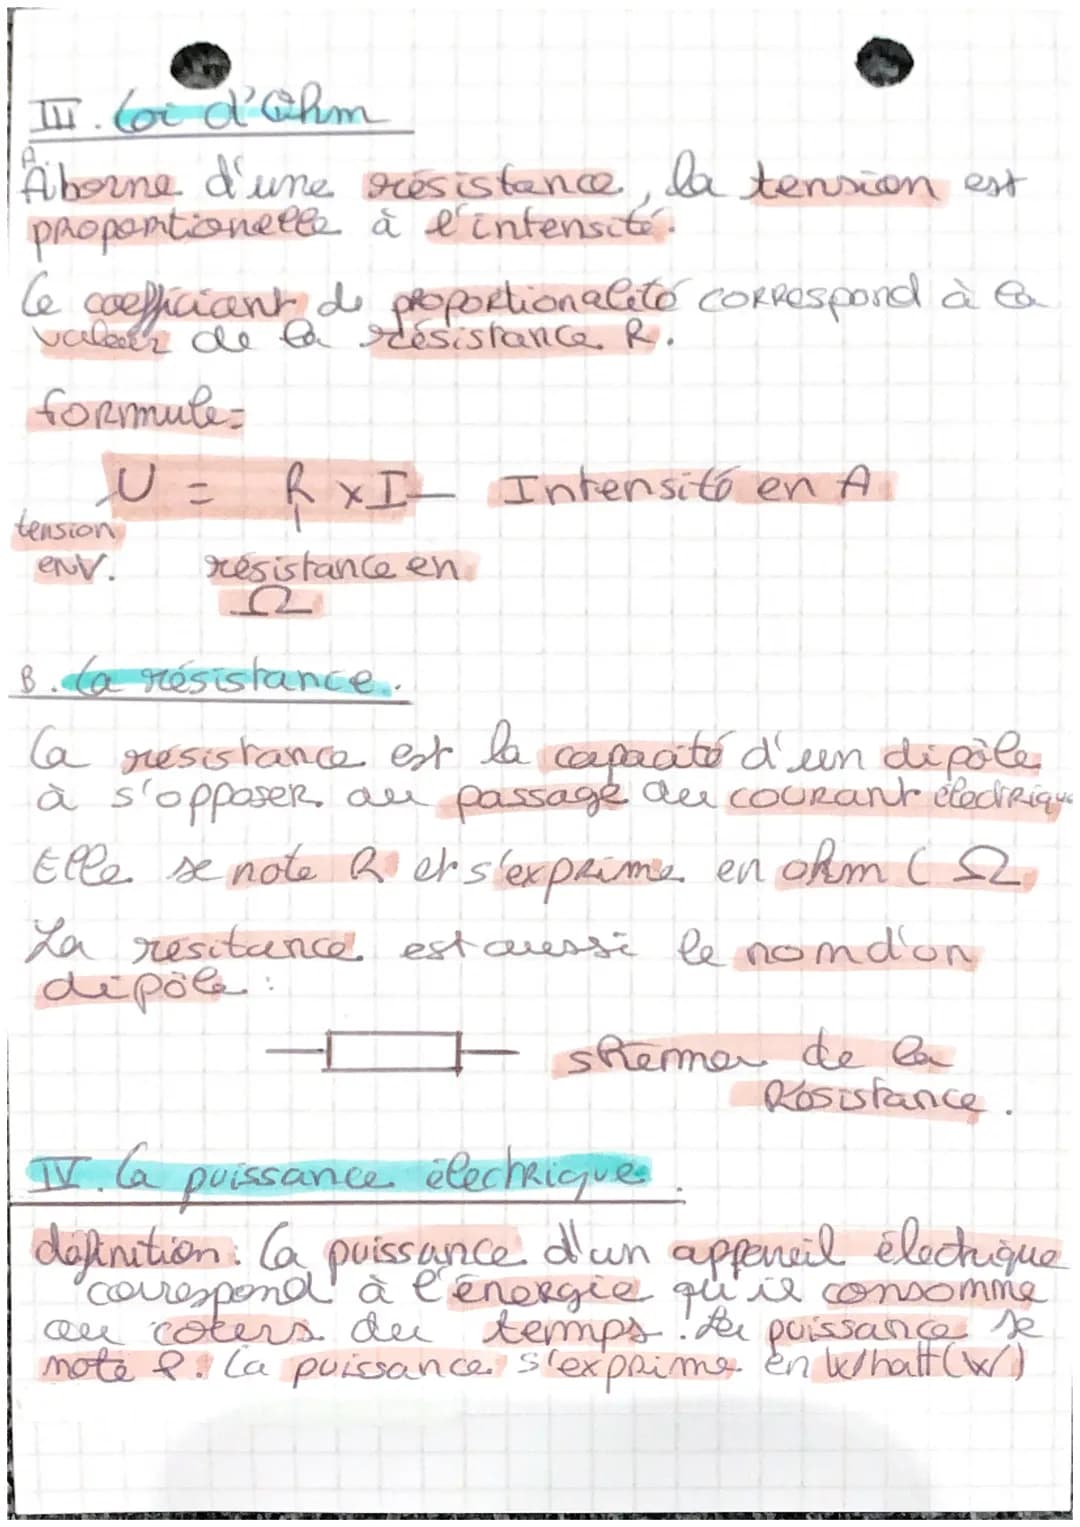 III. Loi d'Ohm
A.
A borne d'une résistance, la tension est
proportionelle à l'intensité.
Le coefficiant de proportionalité correspond à la
valeur de la résistance R.
formule:
U = R x I — Intensité en A
tension
en V.
résistance en
Ω
B. La résistance.
La résistance est la capacité d'un dipôle
à s'opposer au passage du courant électrique
Elle se note R et s'exprime en ohm (Ω
La résitance est aussi le nom d'on
dipôle :
de la
Résistance.
IV. La puissance électrique.
définition: La puissance d'un appareil électrique
correspond à l'énergie qu'il consomme
au cours du temps. La puissance se
note P. La puissance s'exprime en Whatt (W)